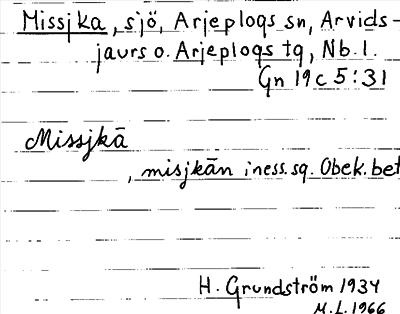 Missjka, sjö, Arjeplogs sn, Arvids-
jaurs o. Arjeplogs tg, Nb. l.
Gn 19 c 5:31
Missjkā
, misjkān iness. sg. Obek. bet
H. Grundström 1934
M.L. 1966